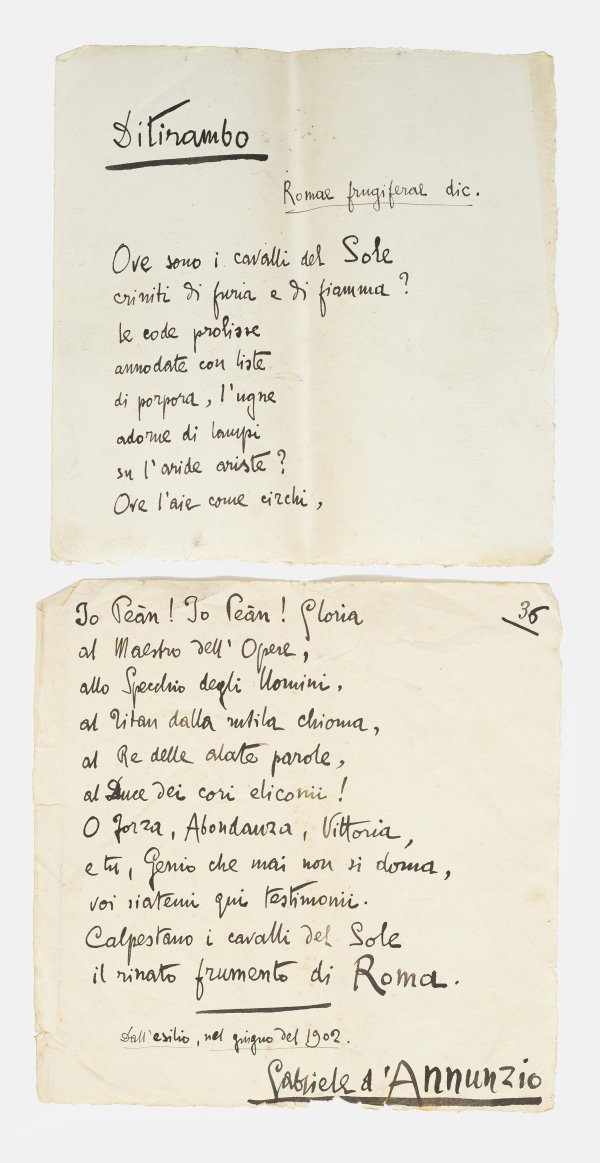 Ditirambo
Romae frugiferae dic.
Ove sono i cavalli del Sole
criniti di furia e di fiamma?
le code prolisse
annodate con liste
di porpora, l'ugne
adorne di lampi
su l'aride ariste?
Ove l'aie come circhi,
36
Io Peàn! Io Peàn! Gloria
al Maestro dell'Opere,
allo Specchio degli Uomini,
al Titan dalla rutila chioma,
al Re delle alate parole,
al Duce dei cori eliconii!
O Forza, Abondanza, Vittoria,
e tu, Genio che mai non si doma,
voi siatemi qui testimonii.
Calpestano i cavalli del Sole
il rinato frumento di Roma.
Dall'esilio, nel giugno del 1902.
Gabriele d'Annunzio